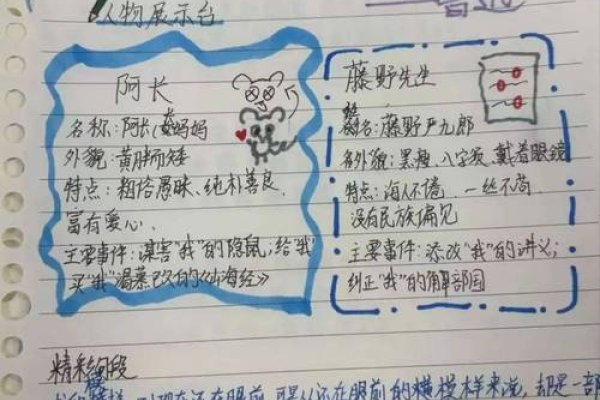 人物展示台
阿长
名称：阿长(长妈妈
外貌：黄胖而矮
特点：粗俗愚昧、纯朴善良、
富有爱心、
主要事件：谋害"我"的隐鼠；给"我"
买"我"渴慕已久的《山海经》
藤野先生
名：藤野严九郎
外貌：黑瘦，八字须，戴着眼镜
特点：诲人不倦 一丝不苟
没有民族偏见
主要事件：添改"我"的讲义；
纠正"我"的解部图
精彩片段
模样，到现在还在眼前，可是从还在眼前的模样来说，却是一部